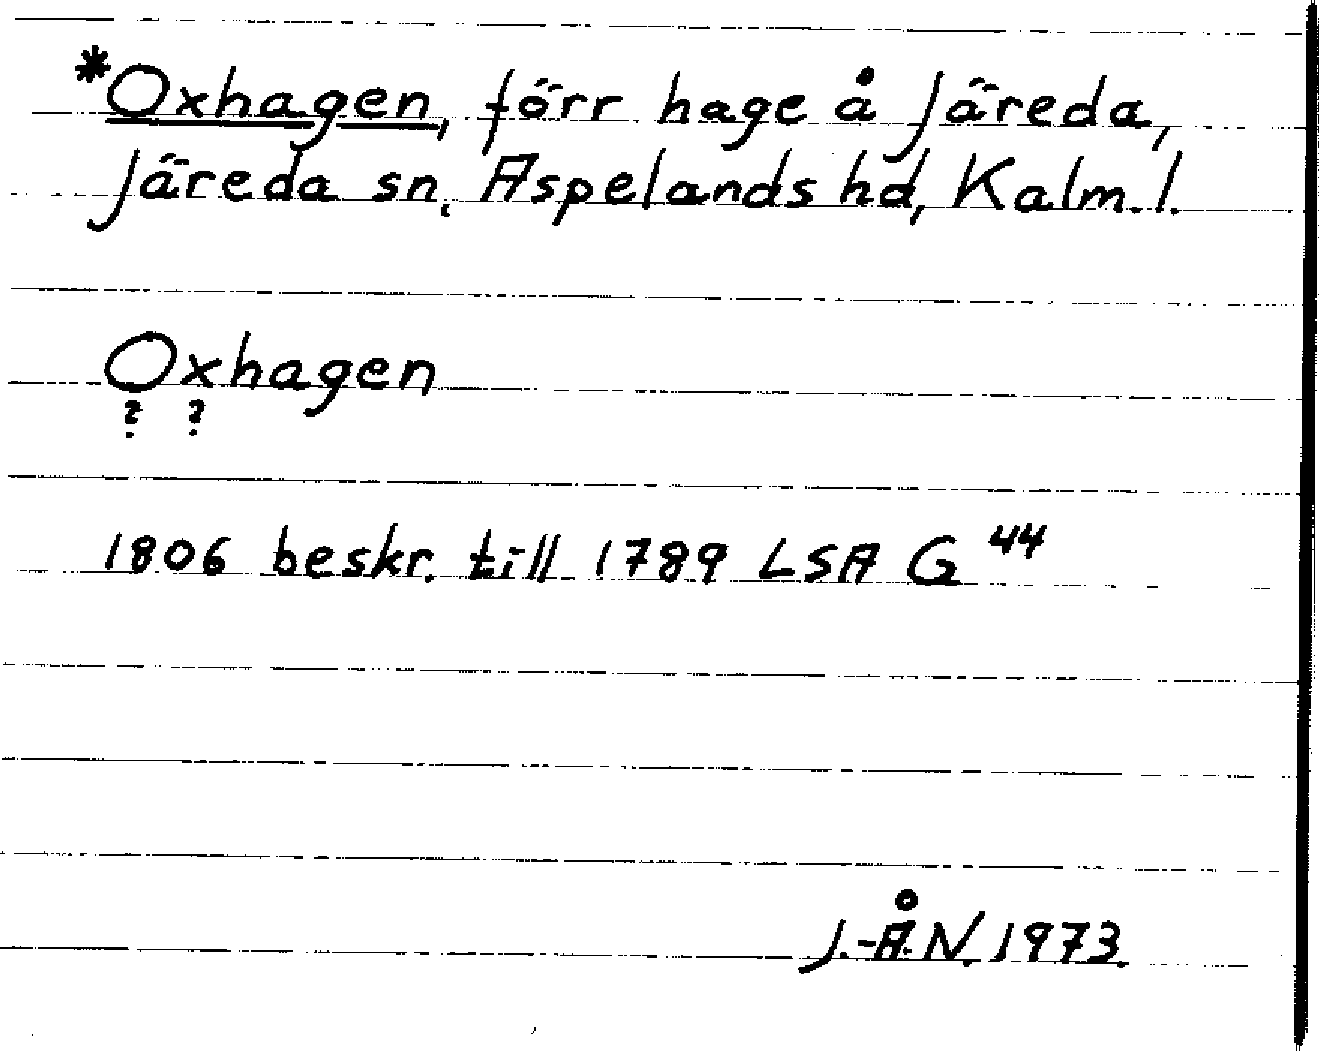 *Oxhagen, förr hage å Järeda,
Järeda sn, Aspelands hd, Kalm. l.
Oxhagen
? ?
1806 beskr. till 1789 LSA G 44
J.-Å.N. 1973.